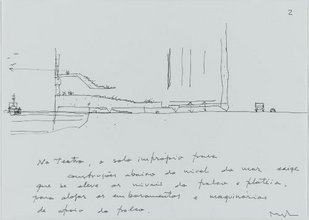 2
No Teatro, o solo impróprio para
construções abaixo do nível do mar, exige
que se eleve os níveis do palco e platéia,
para alojar os embasamentos e maquinarias
de apoio do palco.